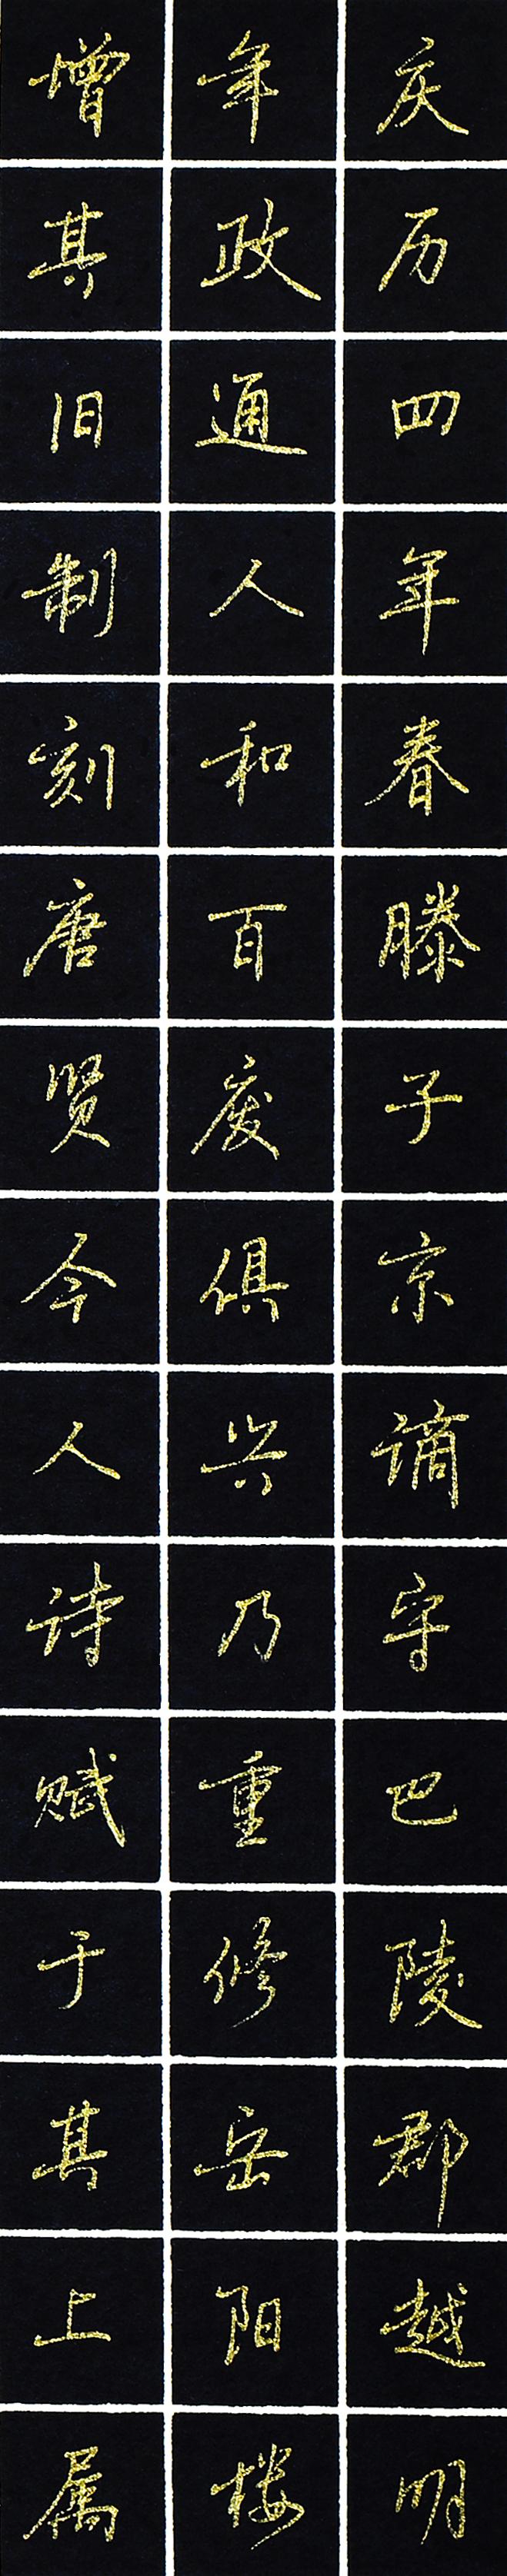 庆历四年春滕子京谪守巴陵郡越明
年政通人和百废俱兴乃重修岳阳楼
增其旧制刻唐贤今人诗赋于其上属